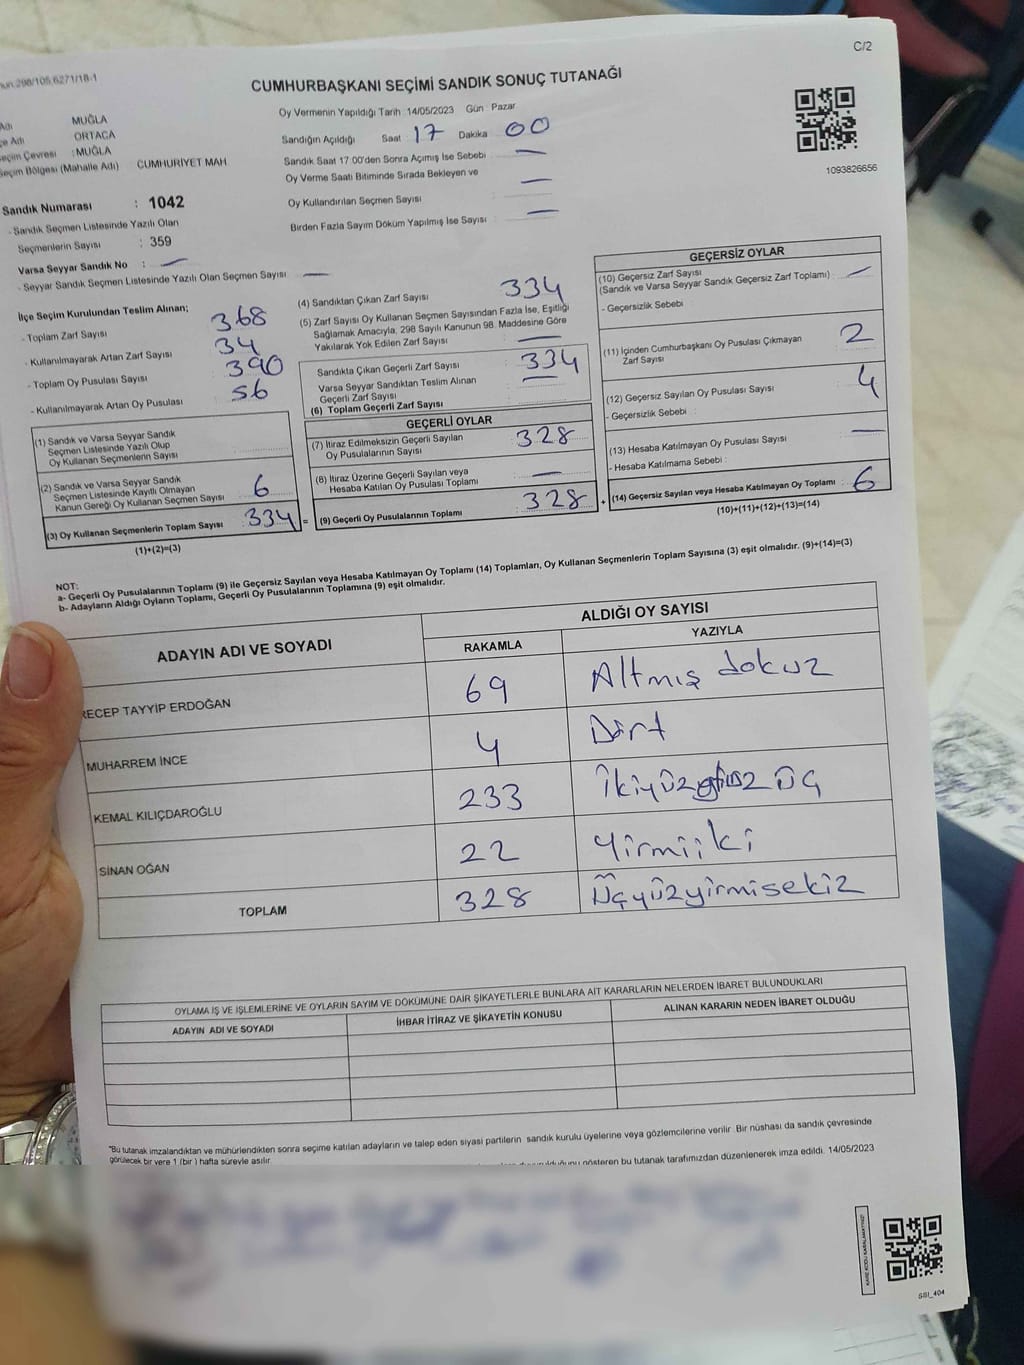 C/2
CUMHURBAŞKANI SEÇİMİ SANDIK SONUÇ TUTANAĞI
298/105,6271/18-1
MUĞLA
ORTACA
: MUĞLA
Seçim Bölgesi (Mahalle Adı) CUMHURİYET MAH
Sandık Numarası : 1042
- Sandık Seçmen Listesinde Yazılı Olan
Seçmenlerin Sayısı : 359
Varsa Seyyar Sandık No : —
- Seyyar Sandık Seçmen Listesinde Yazılı Olan Seçmen Sayısı —
Oy Vermenin Yapıldığı Tarih 14/05/2023 Gün : Pazar
Sandığın Açıldığı Saat 17 Dakika 00
Sandık Saat 17 00'den Sonra Açımış İse Sebebi —
Oy Verme Saati Bitiminde Sırada Bekleyen ve
Oy Kullandırılan Seçmen Sayısı —
Birden Fazla Sayım Döküm Yapılmış İse Sayısı —
1093826656
İlçe Seçim Kurulundan Teslim Alınan;
- Toplam Zarf Sayısı 368
- Kullanılmayarak Artan Zarf Sayısı 34
- Toplam Oy Pusulası Sayısı 390
- Kullanılmayarak Artan Oy Pusulası 56
(1) Sandık ve Varsa Seyyar Sandık
Seçmen Listesinde Yazılı Olup
Oy Kullanan Seçmenlerin Sayısı
(2) Sandık ve Varsa Seyyar Sandık
Seçmen Listesinde Kayıtlı Olmayan
Kanun Gereği Oy Kullanan Seçmen Sayısı 6
(3) Oy Kullanan Seçmenlerin Toplam Sayısı : 334 =
(1)+(2)=(3)
(4) Sandıktan Çıkan Zarf Sayısı 334
(5) Zarf Sayısı Oy Kullanan Seçmen Sayısından Fazla İse, Eşitliği
Sağlamak Amacıyla, 298 Sayılı Kanunun 98. Maddesine Göre
Yakılarak Yok Edilen Zarf Sayısı —
Sandıkta Çıkan Geçerli Zarf Sayısı : 334
Varsa Seyyar Sandıktan Teslim Alınan
Geçerli Zarf Sayısı —
(6) Toplam Geçerli Zarf Sayısı
GEÇERLİ OYLAR
(7) İtiraz Edilmeksizin Geçerli Sayılan
Oy Pusulalarının Sayısı 328
(8) İtiraz Üzerine Geçerli Sayılan veya
Hesaba Katılan Oy Pusulası Toplamı —
(9) Geçerli Oy Pusulalarının Toplamı 328 +
GEÇERSİZ OYLAR
(10) Geçersiz Zarf Sayısı
(Sandık ve Varsa Seyyar Sandık Geçersiz Zarf Toplamı) —
- Geçersizlik Sebebi :
(11) İçinden Cumhurbaşkanı Oy Pusulası Çıkmayan
Zarf Sayısı 2
(12) Geçersiz Sayılan Oy Pusulası Sayısı 4
- Geçersizlik Sebebi :
(13) Hesaba Katılmayan Oy Pusulası Sayısı —
- Hesaba Katılmama Sebebi :
(14) Geçersiz Sayılan veya Hesaba Katılmayan Oy Toplamı : 6
(10)+(11)+(12)+(13)=(14)
NOT:
a- Geçerli Oy Pusulalarının Toplamı (9) ile Geçersiz Sayılan veya Hesaba Katılmayan Oy Toplamı (14) Toplamları, Oy Kullanan Seçmenlerin Toplam Sayısına (3) eşit olmalıdır. (9)+(14)=(3)
b- Adayların Aldığı Oyların Toplamı, Geçerli Oy Pusulalarının Toplamına (9) eşit olmalıdır.
ADAYIN ADI VE SOYADI
ALDIĞI OY SAYISI
RAKAMLA YAZIYLA
RECEP TAYYİP ERDOĞAN 69 Altmış dokuz
MUHARREM İNCE 4 Dört
KEMAL KILIÇDAROĞLU 233 İkiyüz otuz üç
SİNAN OĞAN 22 Yirmiiki
TOPLAM 328 Üçyüzyirmisekiz
OYLAMA İŞ VE İŞLEMLERİNE VE OYLARIN SAYIM VE DÖKÜMÜNE DAİR ŞİKAYETLERLE BUNLARA AİT KARARLARIN NELERDEN İBARET BULUNDUKLARI
ADAYIN ADI VE SOYADI İHBAR İTİRAZ VE ŞİKAYETİN KONUSU ALINAN KARARIN NEDEN İBARET OLDUĞU
"Bu tutanak imzalandıktan ve mühürlendikten sonra seçime katılan adayların ve talep eden siyasi partilerin sandık kurulu üyelerine veya gözlemcilerine verilir. Bir nüshası da sandık çevresinde
görülecek bir yere 1 (bir) hafta süreyle asılır. gösteren bu tutanak tarafımızdan düzenlenerek imza edildi. 14/05/2023
KARE KODU KARALAMAYINIZ!
SSI_404